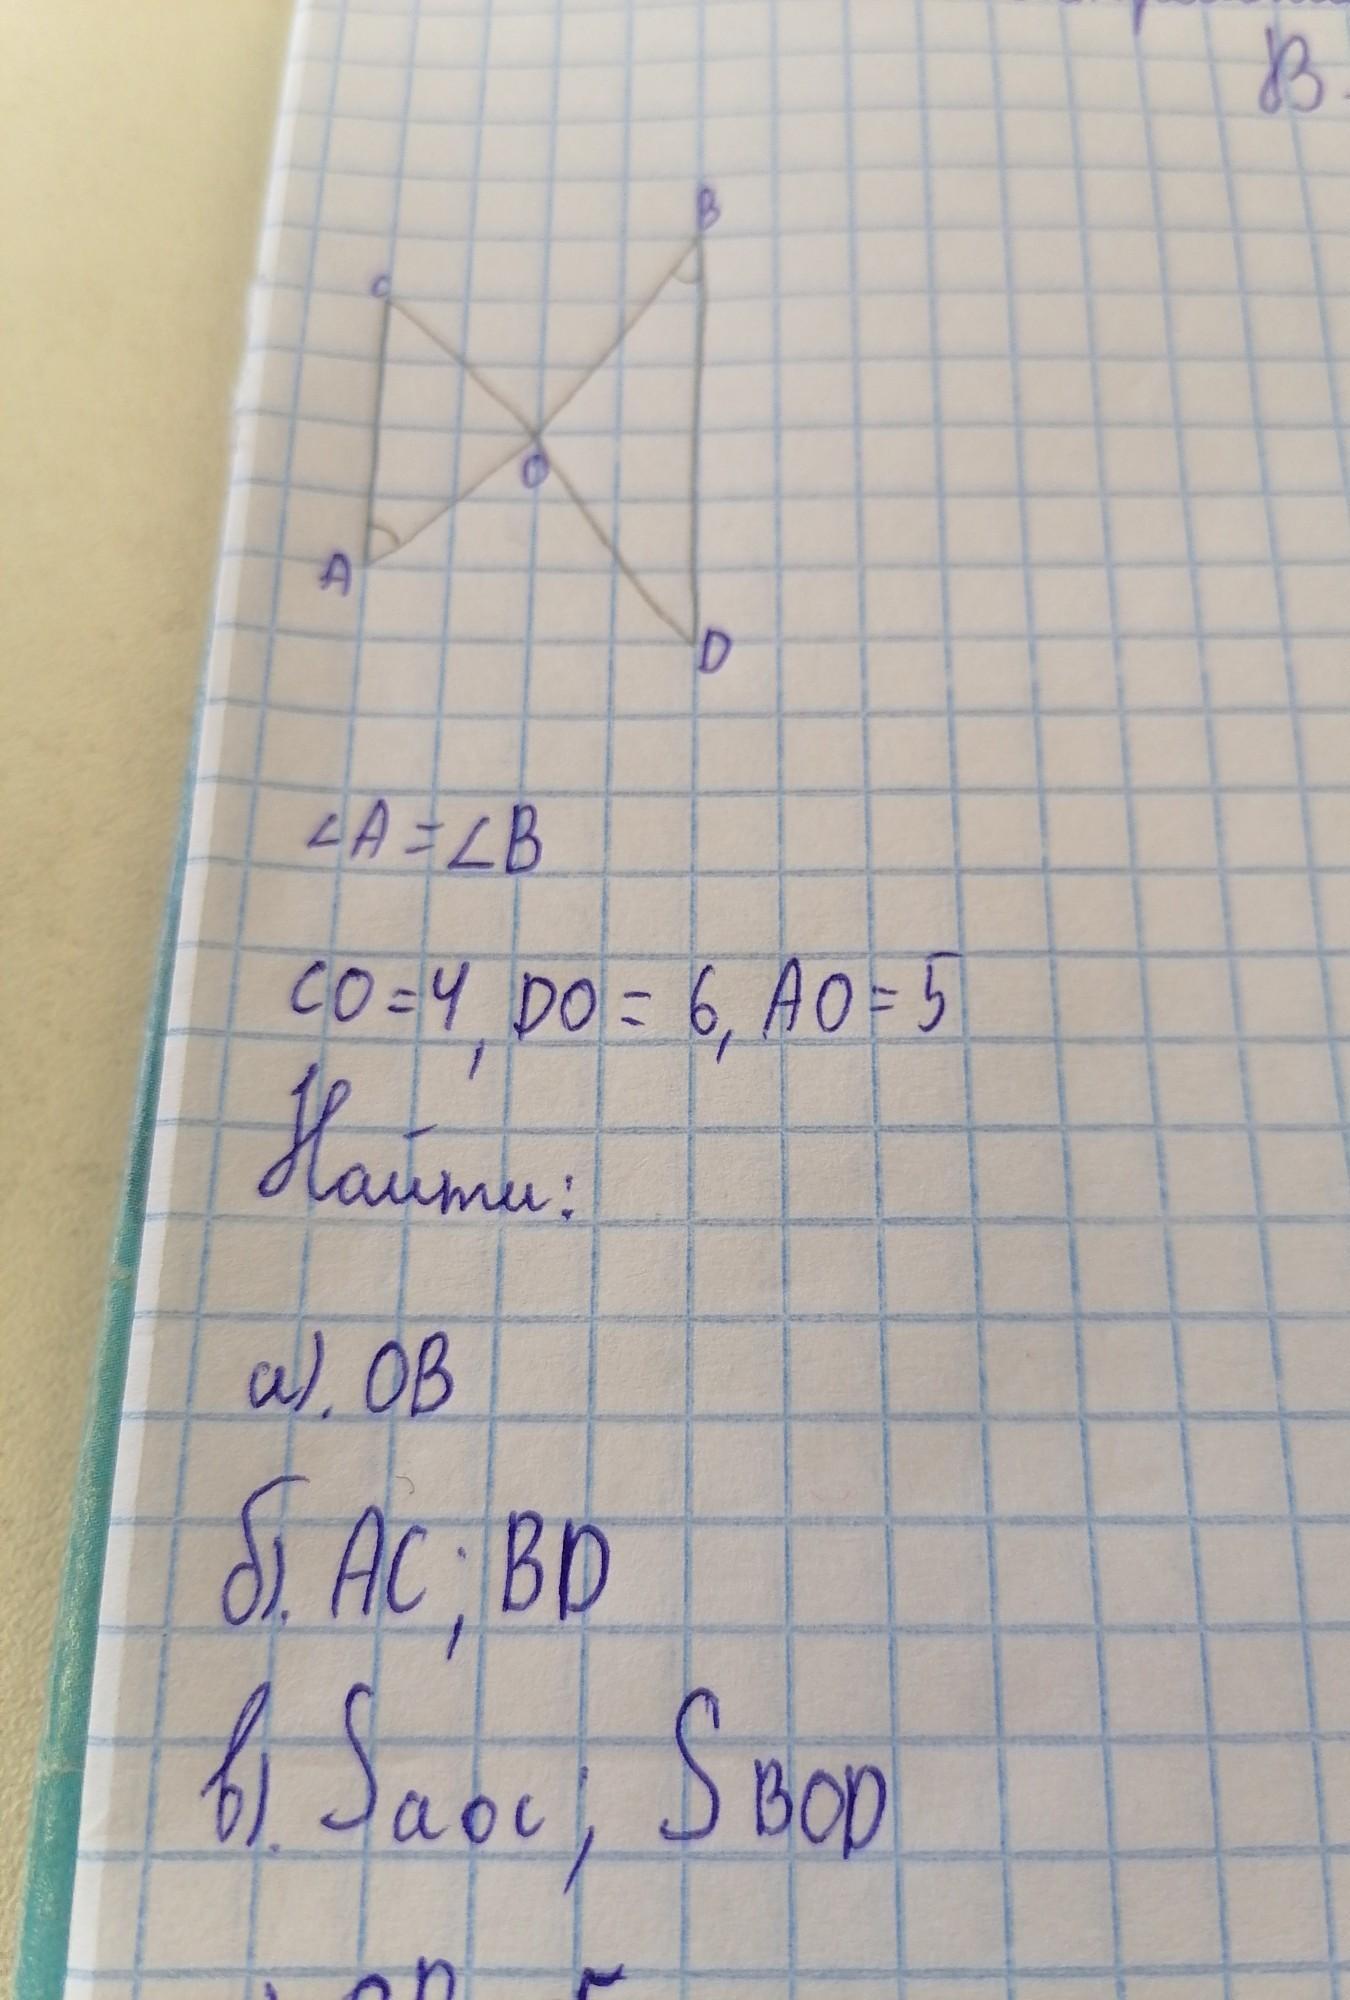 В.
B
C
O
A
D
∠A = ∠B
CO = 4, DO = 6, AO = 5
Найти:
а). OB
б). AC; BD
в). Sаос; SBOD